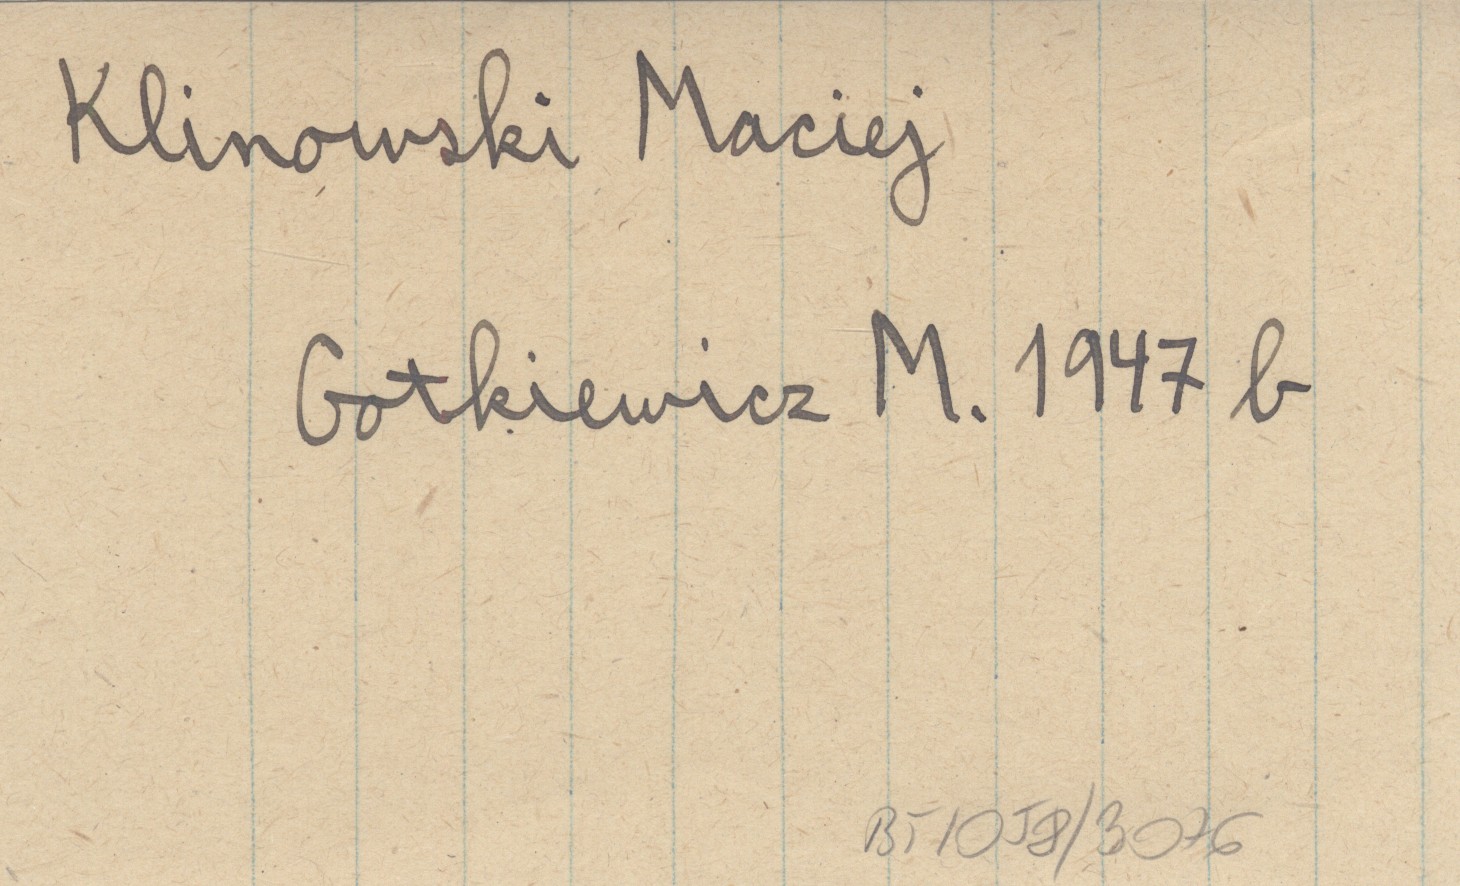 Klinowski Maciej
Gotkiewicz M. 1947 b
BT10J8/3076